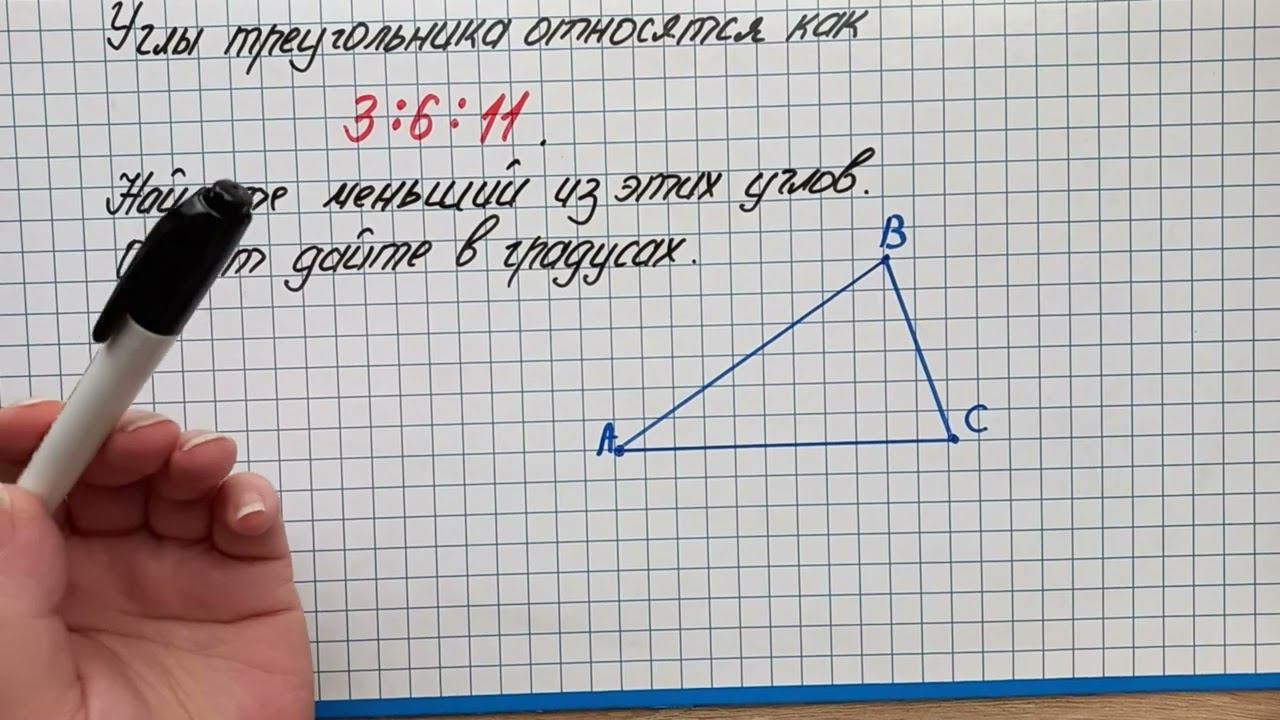 Углы треугольника относятся как
3:6:11.
меньший из этих углов.
дайте в градусах.
B
A
C